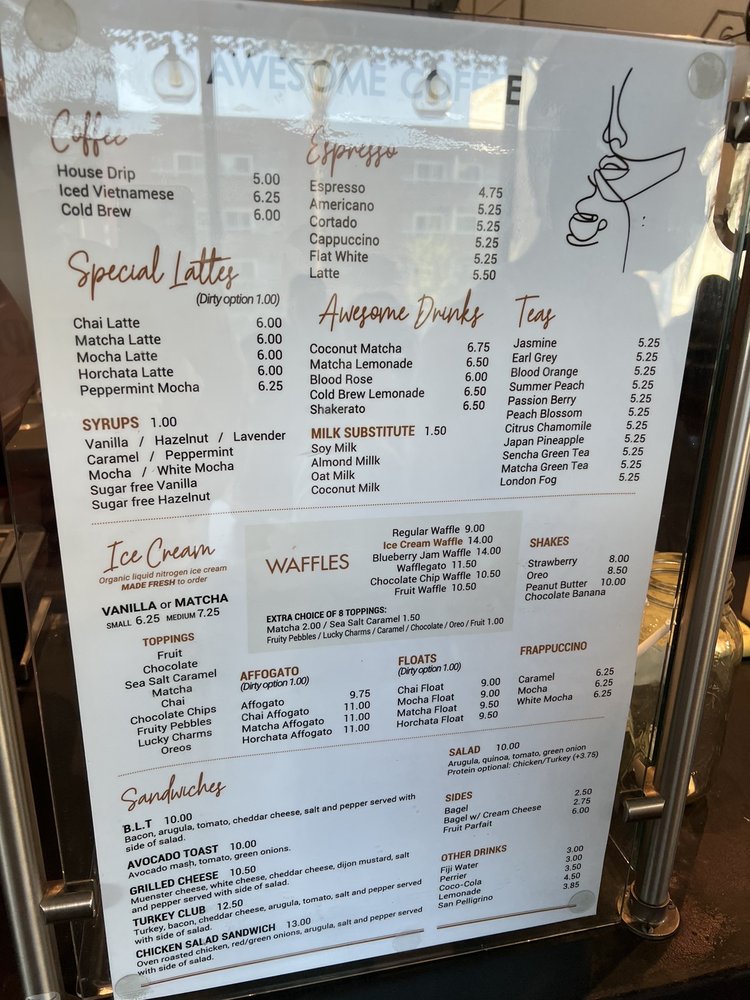 AWESOME COFFEE
Coffee
House Drip 5.00
Iced Vietnamese 6.25
Cold Brew 6.00
Espresso
Espresso 4.75
Americano 5.25
Cortado 5.25
Cappuccino 5.25
Flat White 5.25
Latte 5.50
Special Lattes
(Dirty option 1.00)
Chai Latte 6.00
Matcha Latte 6.00
Mocha Latte 6.00
Horchata Latte 6.00
Peppermint Mocha 6.25
SYRUPS 1.00
Vanilla / Hazelnut / Lavender
Caramel / Peppermint
Mocha / White Mocha
Sugar free Vanilla
Sugar free Hazelnut
Awesome Drinks
Coconut Matcha 6.75
Matcha Lemonade 6.50
Blood Rose 6.00
Cold Brew Lemonade 6.50
Shakerato 6.50
MILK SUBSTITUTE 1.50
Soy Milk
Almond Millk
Oat Milk
Coconut Milk
Teas
Jasmine 5.25
Earl Grey 5.25
Blood Orange 5.25
Summer Peach 5.25
Passion Berry 5.25
Peach Blossom 5.25
Citrus Chamomile 5.25
Japan Pineapple 5.25
Sencha Green Tea 5.25
Matcha Green Tea 5.25
London Fog 5.25
Ice Cream
Organic liquid nitrogen ice cream
MADE FRESH to order
VANILLA or MATCHA
SMALL 6.25 MEDIUM 7.25
TOPPINGS
Fruit
Chocolate
Sea Salt Caramel
Matcha
Chai
Chocolate Chips
Fruity Pebbles
Lucky Charms
Oreos
WAFFLES
Regular Waffle 9.00
Ice Cream Waffle 14.00
Blueberry Jam Waffle 14.00
Wafflegato 11.50
Chocolate Chip Waffle 10.50
Fruit Waffle 10.50
EXTRA CHOICE OF 8 TOPPINGS:
Matcha 2.00 / Sea Salt Caramel 1.50
Fruity Pebbles / Lucky Charms / Caramel / Chocolate / Oreo / Fruit 1.00
SHAKES
Strawberry 8.00
Oreo 8.50
Peanut Butter 10.00
Chocolate Banana
AFFOGATO
(Dirty option 1.00)
Affogato 9.75
Chai Affogato 11.00
Matcha Affogato 11.00
Horchata Affogato 11.00
FLOATS
(Dirty option 1.00)
Chai Float 9.00
Mocha Float 9.00
Matcha Float 9.50
Horchata Float 9.50
FRAPPUCCINO
Caramel 6.25
Mocha 6.25
White Mocha 6.25
Sandwiches
B.L.T 10.00
Bacon, arugula, tomato, cheddar cheese, salt and pepper served with
side of salad.
AVOCADO TOAST 10.00
Avocado mash, tomato, green onions.
GRILLED CHEESE 10.50
Muenster cheese, white cheese, cheddar cheese, dijon mustard, salt
and pepper served with side of salad.
TURKEY CLUB 12.50
Turkey, bacon, cheddar cheese, arugula, tomato, salt and pepper served
with side of salad.
CHICKEN SALAD SANDWICH 13.00
Oven roasted chicken, red/green onions, arugula, salt and pepper served
with side of salad.
SALAD 10.00
Arugula, quinoa, tomato, green onion
Protein optional: Chicken/Turkey (+3.75)
SIDES
Bagel 2.50
Bagel w/ Cream Cheese 2.75
Fruit Parfait 6.00
OTHER DRINKS
Fiji Water 3.00
Perrier 3.00
Coco-Cola 3.50
Lemonade 4.50
San Pelligrino 3.85